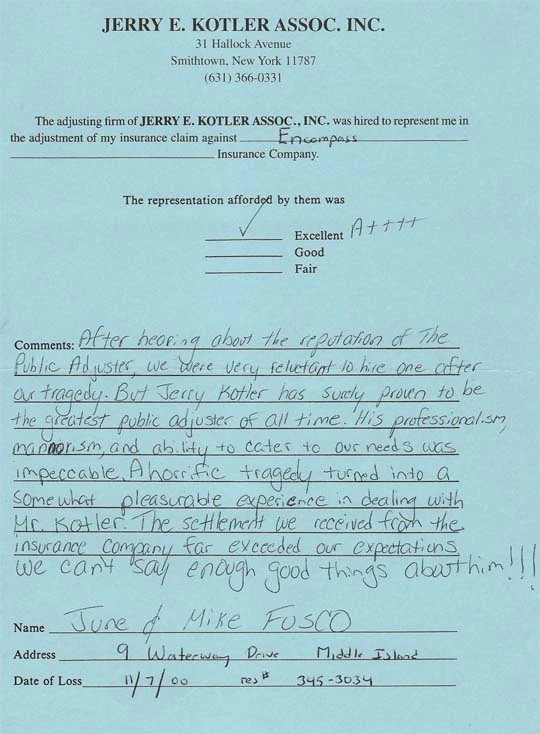 JERRY E. KOTLER ASSOC. INC.
31 Hallock Avenue
Smithtown, New York 11787
(631) 366-0331
The adjusting firm of JERRY E. KOTLER ASSOC., INC. was hired to represent me in
the adjustment of my insurance claim against Encompass
Insurance Company.
The representation afforded by them was
Excellent A++++
Good
Fair
Comments: After hearing about the reputation of The
Public Adjuster, we were very reluctant to hire one after
our tragedy. But Jerry Kotler has surely proven to be
the greatest public adjuster of all time. His professionalism,
mannorism, and ability to cater to our needs was
impeccable. A horrific tragedy turned into a
somewhat pleasurable experience in dealing with
Mr. Kotler. The settlement we received from the
insurance company far exceeded our expectations
We can't say enough good things about him!!!
Name June & Mike FUSCO
Address 9 Waterway Drive Middle Island
Date of Loss 11/7/00 res# 345-3034